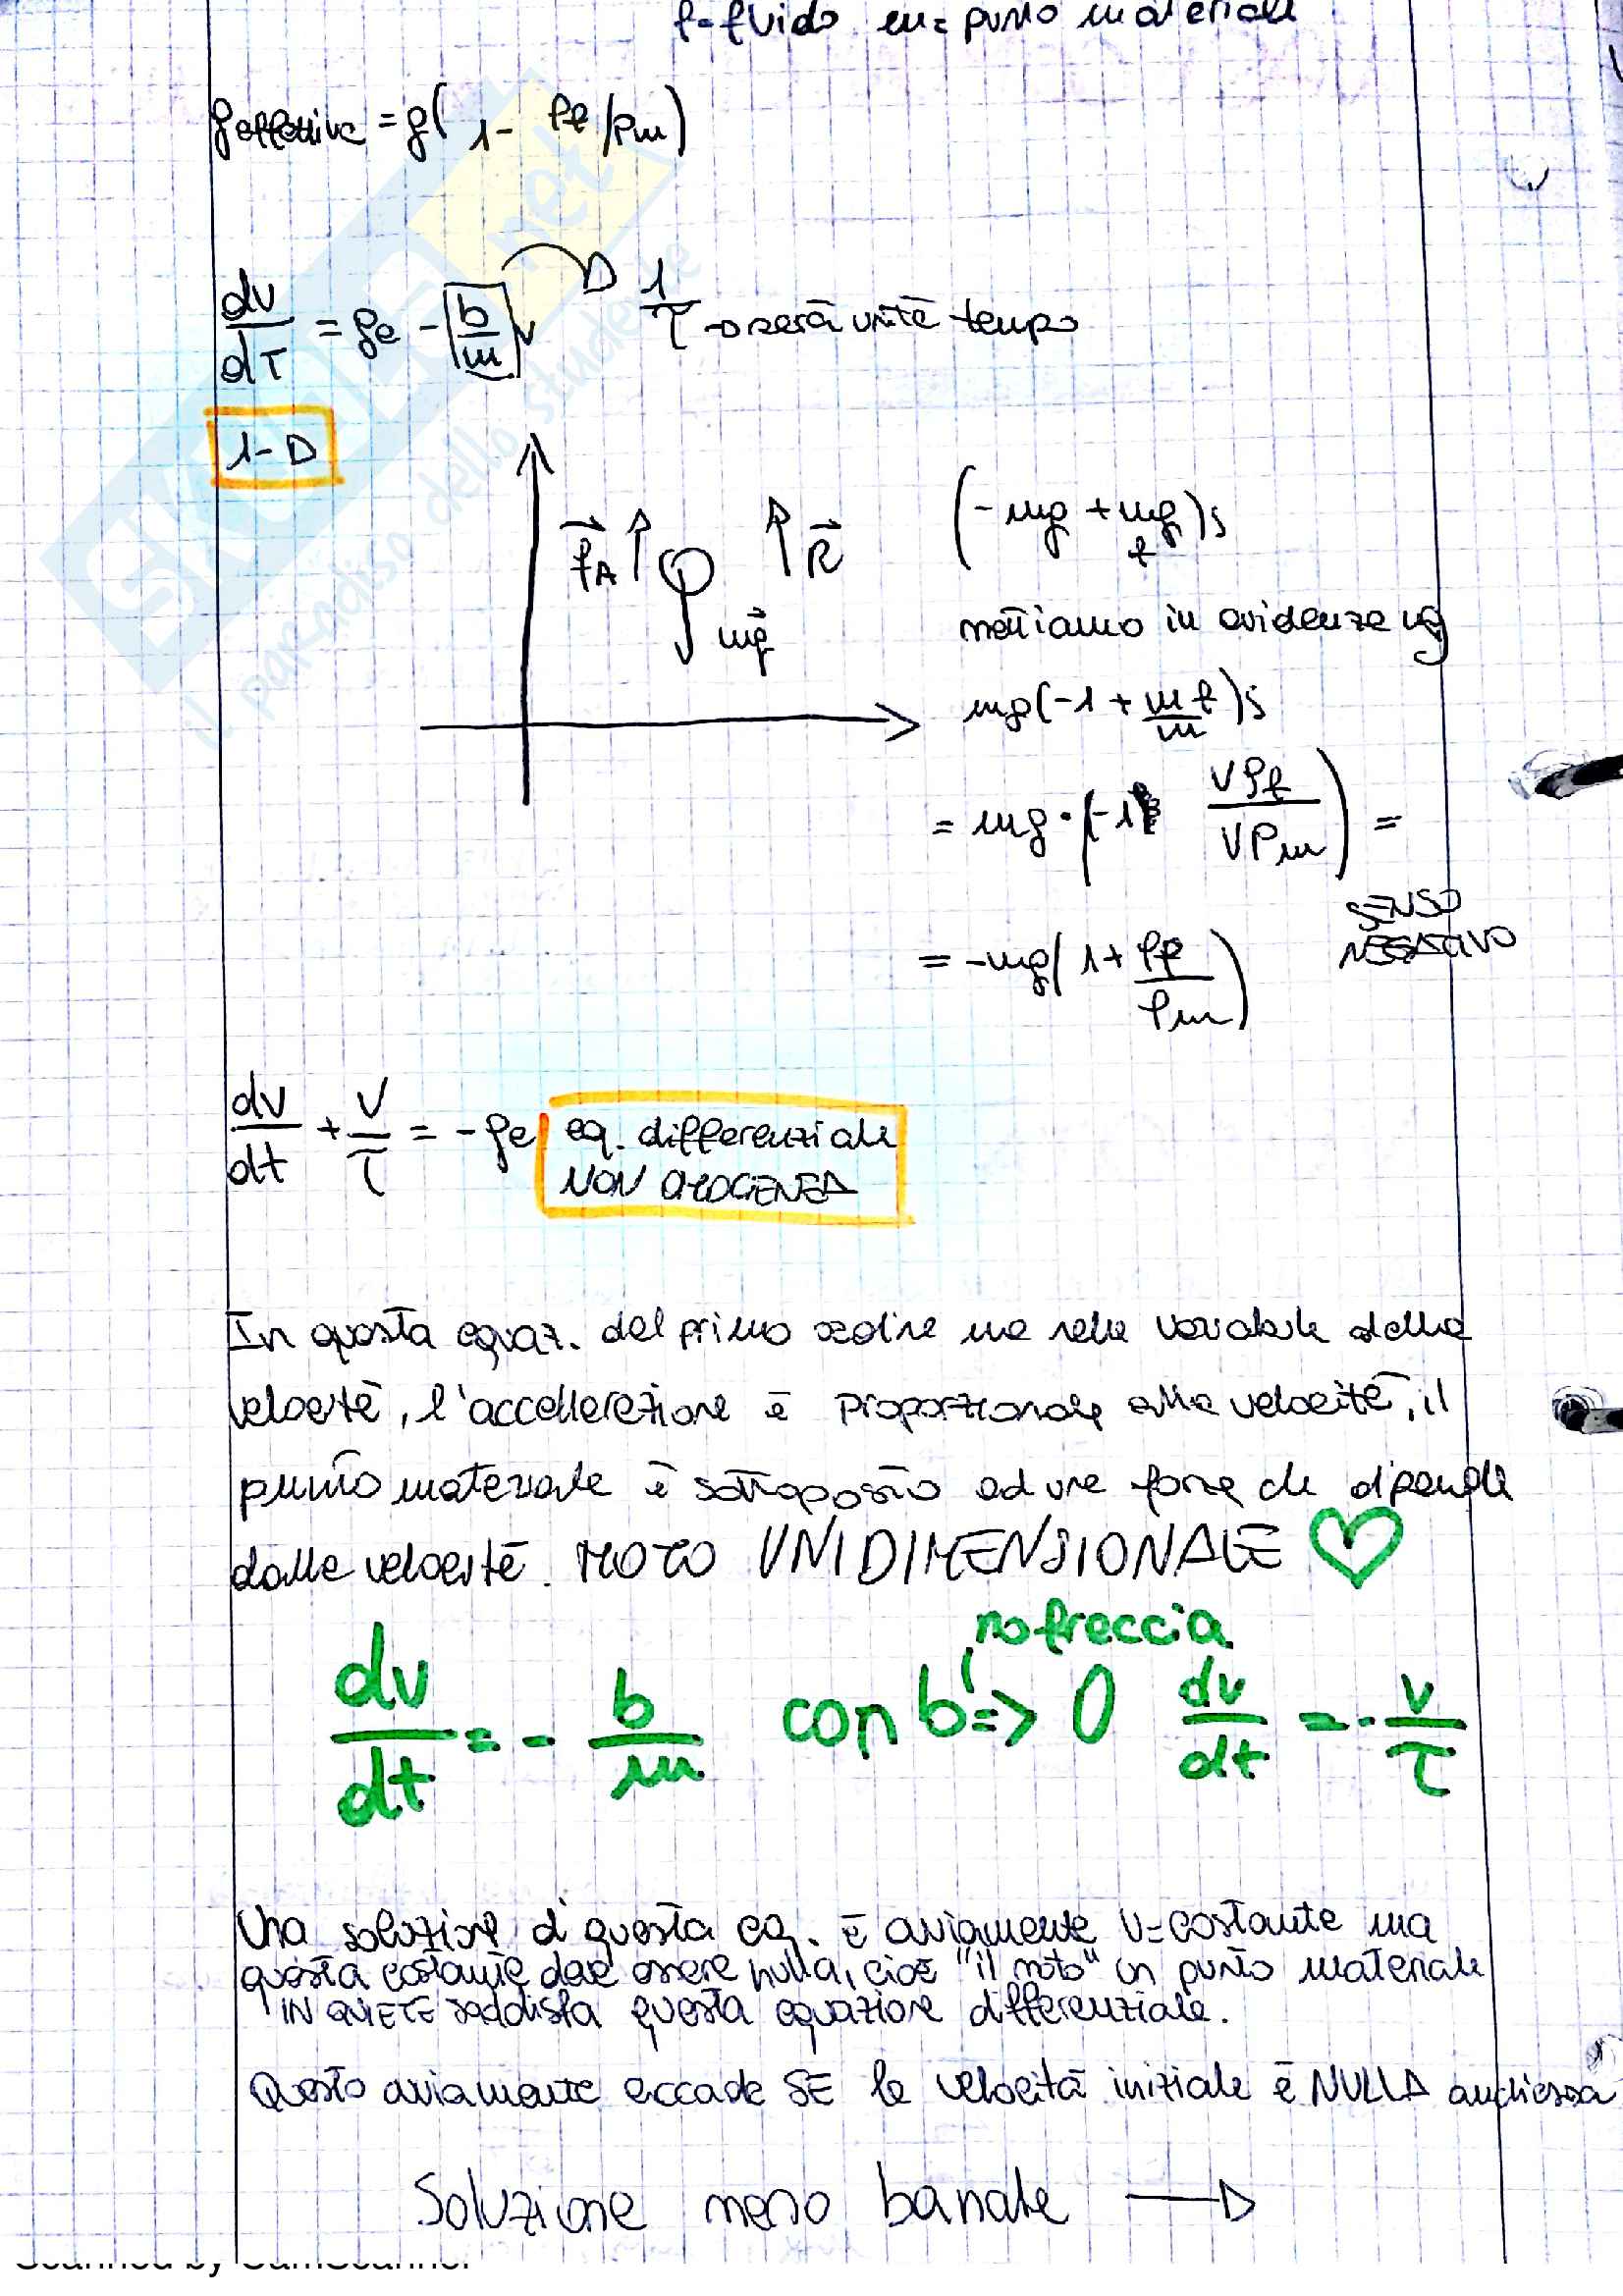 f=fluido m= punto materiale
g effettiva = g( 1- ρf/ρm)
dv/dτ = ge - b/m v → 1/τ → sarà unità tempo
1-D
fA R (-mg + mfg)ĵ
mg
mettiamo in evidenza mg
mg(-1 + mf/m)ĵ
= mg·(-1 Vρf/Vρm) =
SENSO
NEGATIVO
= -mg( 1+ ρf/ρm)
dv/dt + v/τ = - ge eq. differenziale
NON OMOGENEA
In questa equaz. del primo ordine ma nella variabile della
velocità, l'accellerazione è proporzionale alla velocità, il
punto materiale è sottoposto ad una forza che dipende
dalla velocità. MOTO UNIDIMENSIONALE
no freccia
dv/dt = - b/m con b => 0 dv/dt = - v/τ
Una soluzione di questa eq. è ovviamente v=costante ma
questa costante deve essere nulla, cioè "il moto" un punto materiale
IN QUIETE soddisfa questa equazione differenziale.
Questo ovviamente accade SE la velocità iniziale è NULLA anch'essa
Soluzione meno banale →
Scanned by CamScanner
SKUOLA.net
il paradiso dello studente